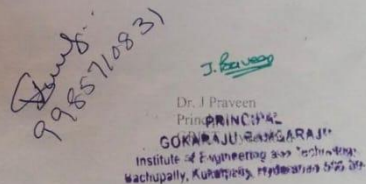 9985710831
J. Praveen
Dr. J Praveen
PRINCIPAL
GOKARAJU RANGARAJU
Institute of Engineering and Technology
Bachupally, Kukatpally, Hyderabad 500